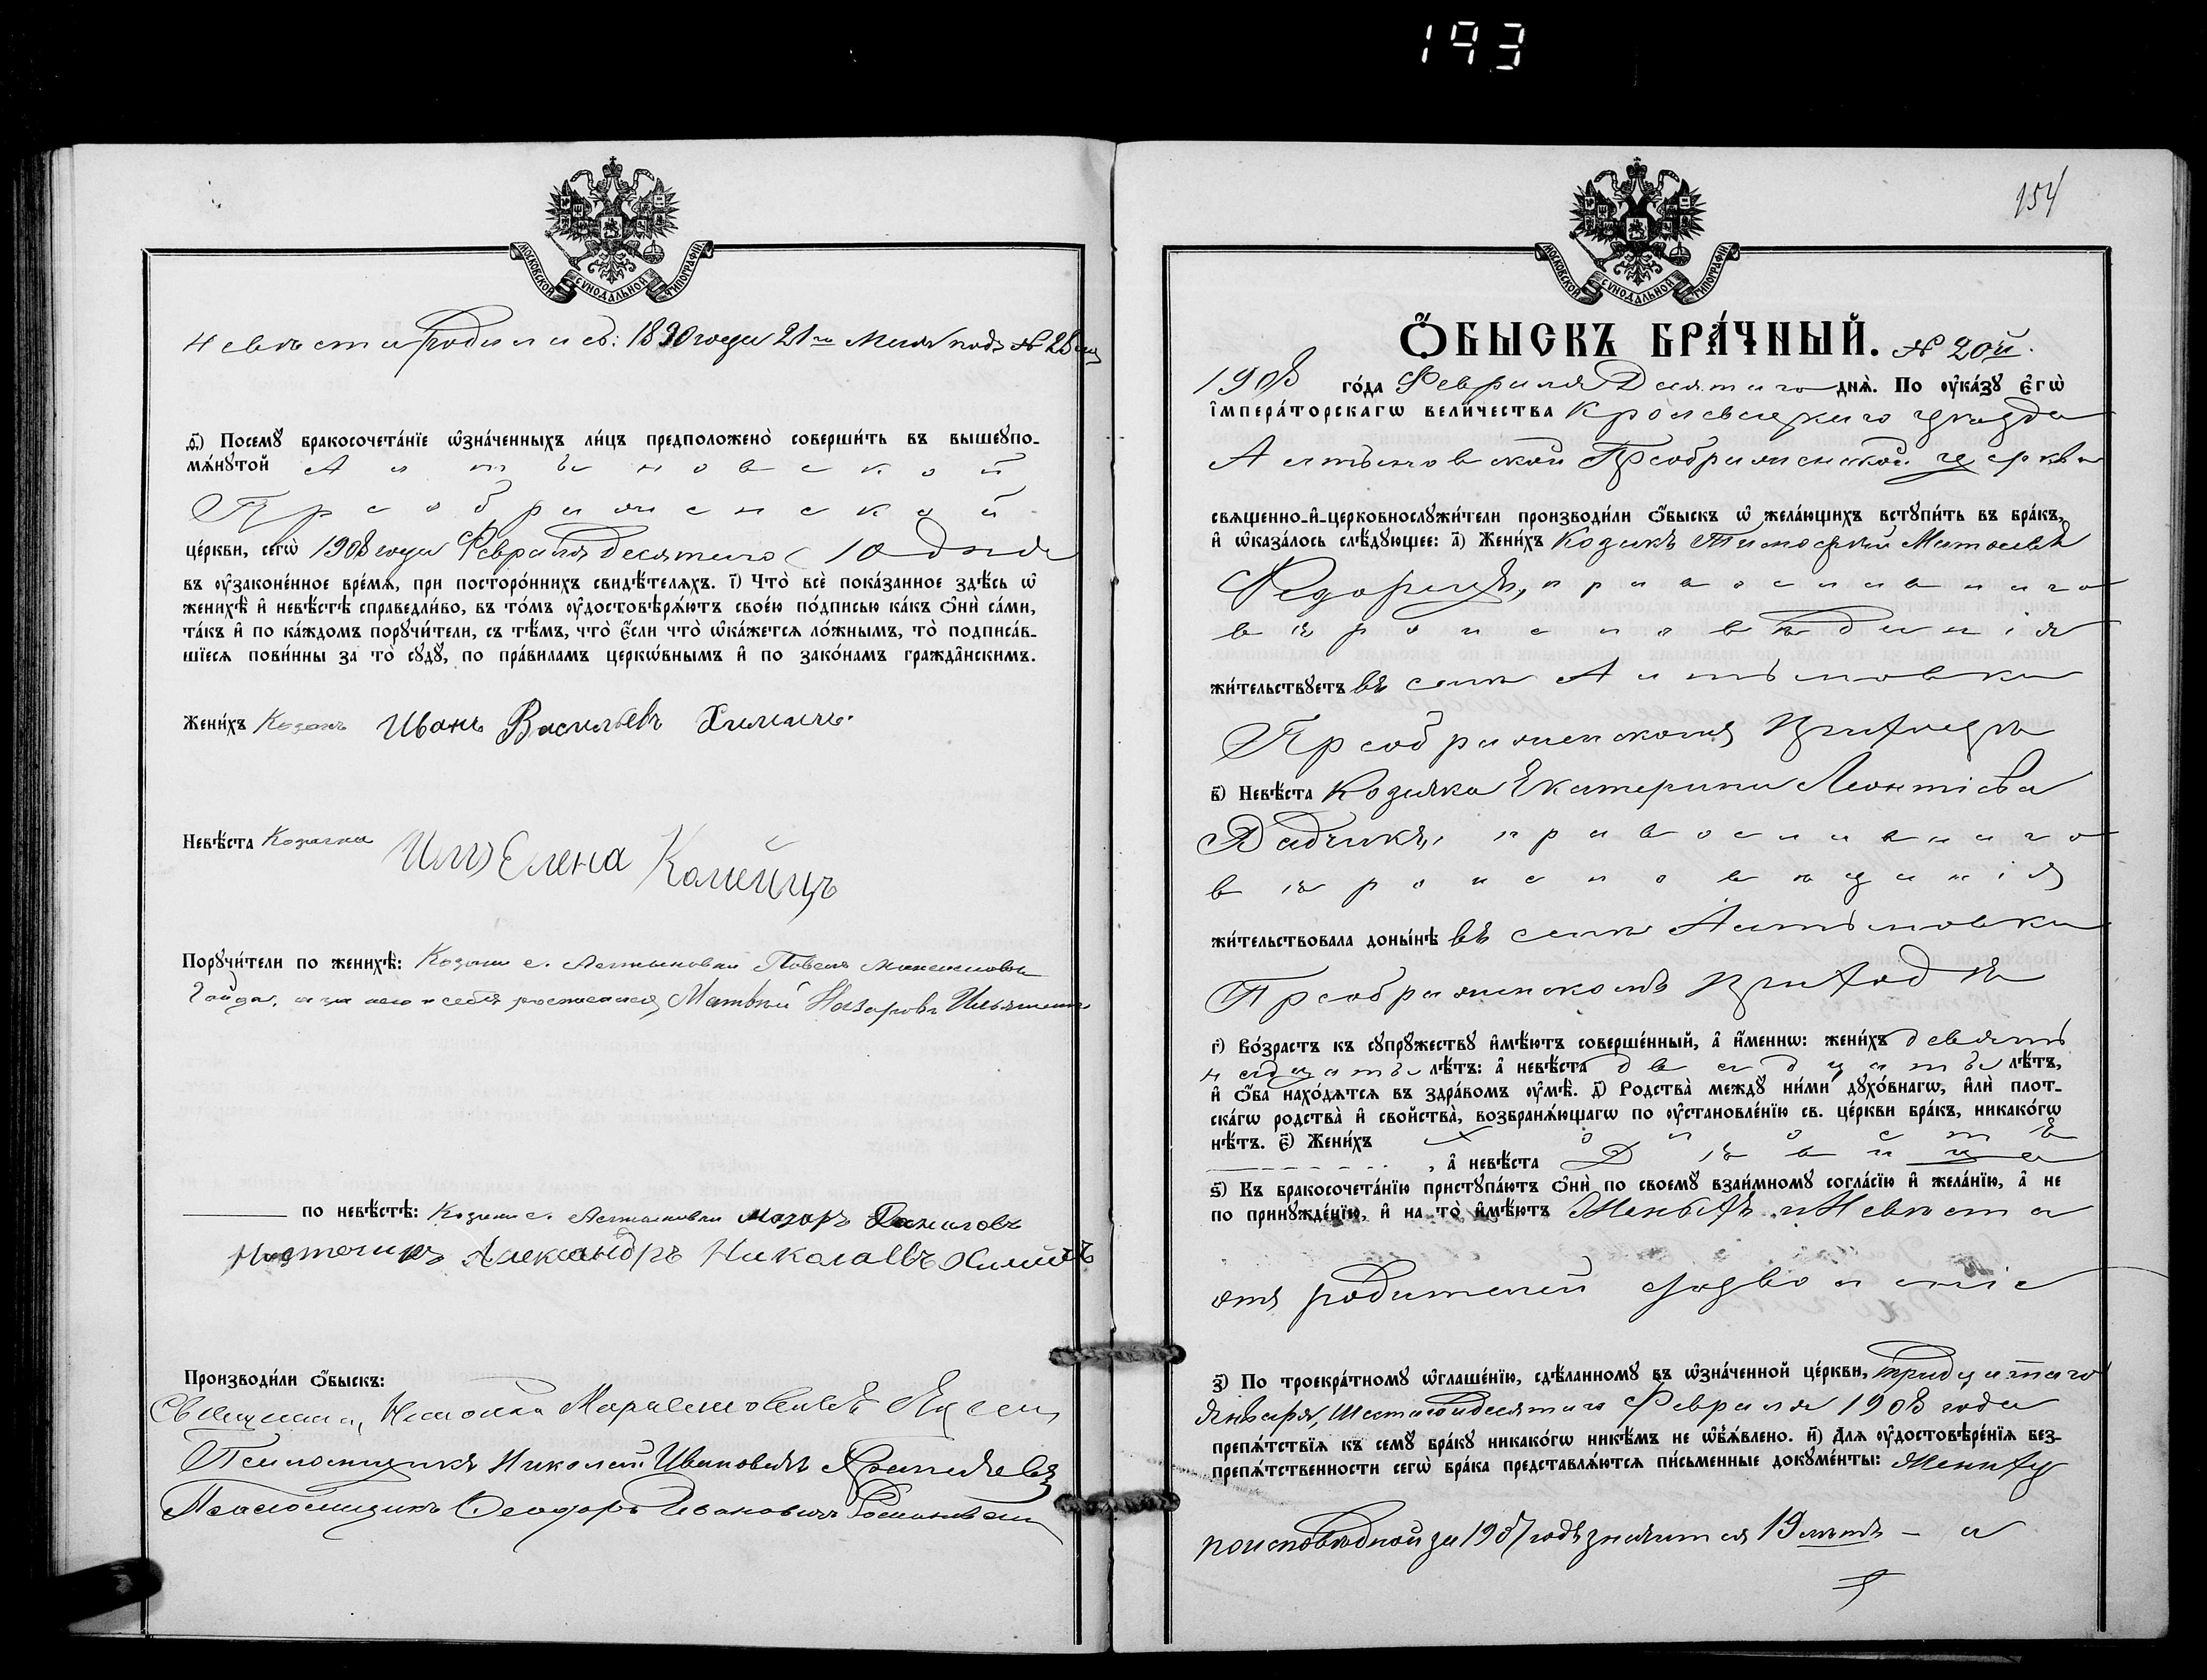 193
МОСКОВСКОЙ СѴНОДАЛЬНОЙ ТИПОГРАФІИ
невѣста родилась: 1890 года 21го Мая подъ № 28мъ
ѳ҃) Посемꙋ бракосочета́нїе ѡ҆зна́ченныхъ ли́цъ предположено̀ соверши́ть въ вышеꙋпо-
мѧ́нꙋтой Алтыновской
Преображенской
це́ркви, сегѡ̀ 1908 года Февраля десятаго 10 дня
въ ᲂу҆законе́нное вре́мѧ, при посторо́ннихъ свидѣ́телѧхъ. і҃) Что̀ всѐ пока́занное здѣ́сь ѡ҆
женихѣ̀ и҆ невѣ́стѣ справедли́во, въ то́мъ ᲂу҆достовѣрѧ́ютъ свое́ю по́дписью ка́къ ѻ҆нѝ са́ми,
та́къ и҆ по ка́ждомъ порꙋчи́тели, съ тѣ́мъ, что̀ є҆́сли что̀ ѡ҆ка́жетсѧ ло́жнымъ, то̀ подписа́в-
шїесѧ пови́нны за то̀ сꙋдꙋ̀, по пра́виламъ церкѡ́внымъ и҆ по зако́намъ гражда̑нскимъ.
Жени́хъ Козакъ Иванъ Васильевъ
Невѣ́ста Козачка Елена
Порꙋчи́тели по женихѣ̀: Козаки с. Алтыновки Павелъ
Гайда, а за него и себя росписался Матвѣй Назаровъ
по невѣ́стѣ: Козаки с. Алтыновки
Александръ Николаевъ
Производи́ли ѻ҆́быскъ:
Священникъ
Псаломщикъ Николай Ивановичъ
Псаломщикъ Ѳеодоръ Ивановичъ
154
МОСКОВСКОЙ СѴНОДАЛЬНОЙ ТИПОГРАФІИ
Ѻ҆́БЫСКЪ БРА́ЧНЫЙ. № 20й.
1908 го́да Февраля Десятаго днѧ̀. По ᲂу҆ка́зꙋ є҆гѡ̀
і҆мпера́торскагѡ вели́чества Кролевецкаго уѣзда
Алтыновской Преображенской церкви
свѧщенно-и҆-церковнослꙋжи́тели производи́ли ѻ҆́быскъ ѡ҆ жела́ющихъ вступи́ть въ бра́къ,
и҆ ѡ҆каза́лось слѣ́дꙋющее: а҃) Жени́хъ Козакъ Тимоѳей
православнаго
вѣроисповѣданія
жи́тельствꙋетъ въ селѣ Алтыновки
Преображенскомъ приходѣ
в҃) Невѣ́ста Козачка Екатерина Леонтіева
православнаго
вѣроисповѣданія
жи́тельствовала доны́нѣ въ селѣ Алтыновки
Преображенскомъ приходѣ
г҃) Во́зрастъ къ сꙋпрꙋ́жествꙋ и҆мѣ́ютъ соверше́нный, а҆ и҆́меннѡ: жени́хъ девят-
надцать лѣ́тъ: а҆ невѣ́ста двадцать лѣ́тъ,
и҆ ѻ҆́ба нахо́дѧтсѧ въ здра́вомъ ᲂу҆мѣ̀. д҃) Родства̀ междꙋ̀ ни́ми дꙋхо́внагѡ, и҆лѝ плот-
ска́гѡ родства̀ и҆ свойства̀, возбранѧ́ющагѡ по ᲂу҆становле́нїю св. це́ркви бра́къ, никако́гѡ
нѣ́тъ. є҃) Жени́хъ холостъ
, а҆ невѣ́ста дѣвица
ѕ҃) Къ бракосочета́нїю пристꙋпа́ютъ ѻ҆нѝ по своемꙋ̀ взаи́мномꙋ согла́сїю и҆ жела́нїю, а҆ не
по принꙋжде́нїю, и҆ на то̀ и҆мѣ́ютъ Женихъ и Невѣста
отъ родителей дозволеніе
з҃) По троекра́тномꙋ ѡ҆глаше́нїю, сдѣ́ланномꙋ въ ѡ҆зна́ченной це́ркви, тридцатаго
Января, Шестаго и десятаго Февраля 1908 года
препѧ́тствїѧ къ семꙋ̀ бра́кꙋ никако́гѡ никѣ́мъ не ѡ҆бъѧ́влено. и҃) Длѧ ᲂу҆достовѣре́нїѧ без-
препѧ́тственности сегѡ̀ бра́ка представлѧ́ютсѧ пи́сьменные докꙋме́нты: Жениху
по исповѣдной за 1907 годъ значится 19 лѣтъ – а